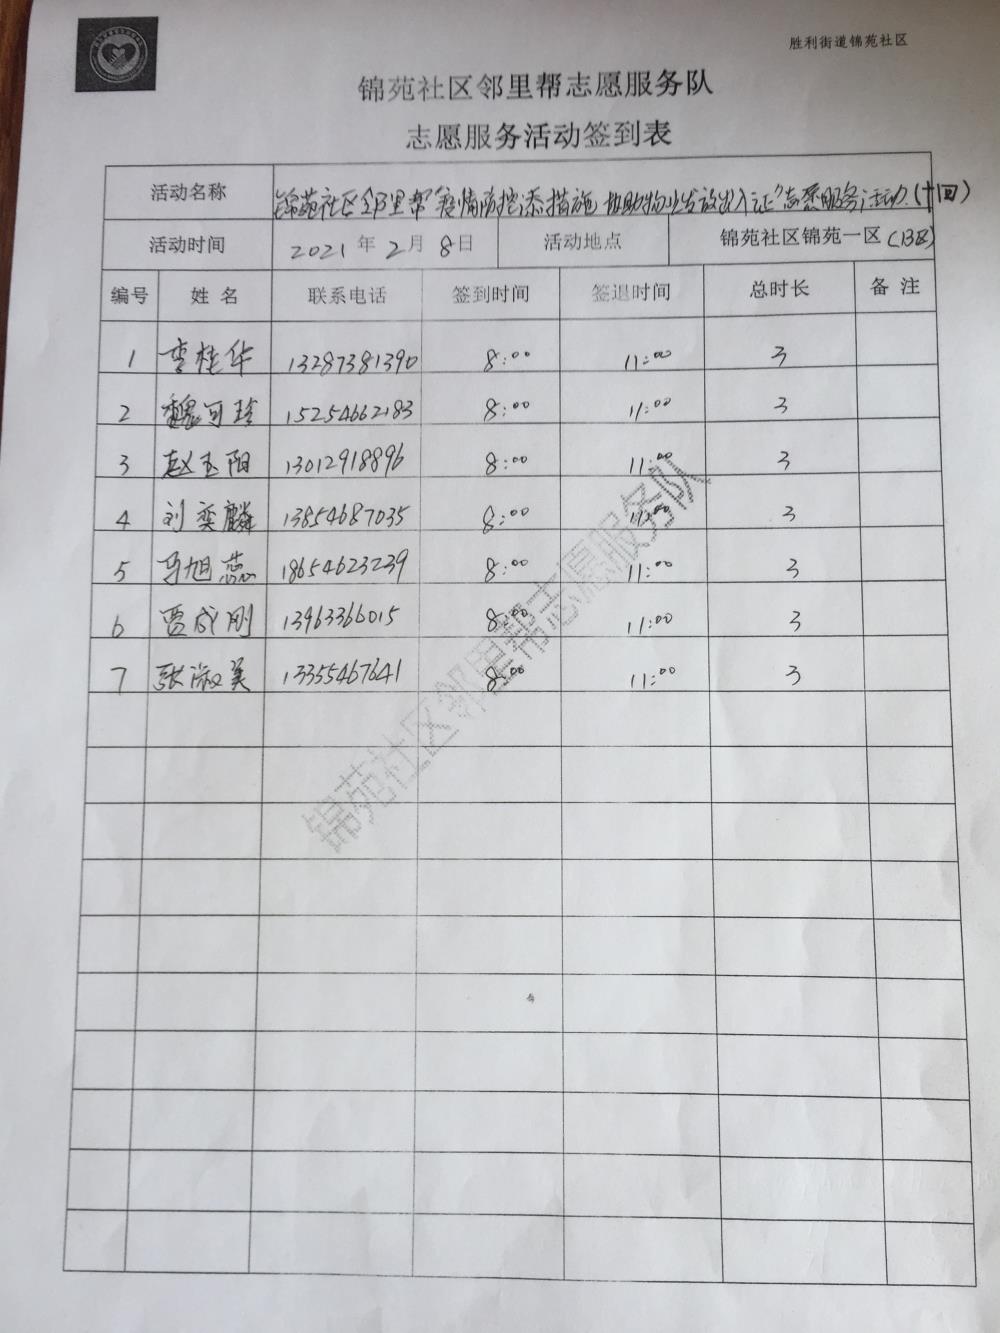 胜利街道锦苑社区
锦苑社区邻里帮志愿服务队
志愿服务活动签到表
活动名称 锦苑社区邻里帮“疫情防控添措施 协助物业发放出入证”志愿服务活动(十回)
活动时间 2021年2月8日 活动地点 锦苑社区锦苑一区(13区)
编号 姓名 联系电话 签到时间 签退时间 总时长 备注
1 李桂华 13287381390 8:00 11:00 3
2 魏可珍 15254662183 8:00 11:00 3
3 赵玉阳 13012918896 8:00 11:00 3
4 刘奕麟 13854687035 8:00 11:00 3
5 马旭蕊 18654623239 8:00 11:00 3
6 贾成刚 13963366015 8:00 11:00 3
7 张淑美 13355467641 8:00 11:00 3
锦苑社区邻里帮志愿服务队